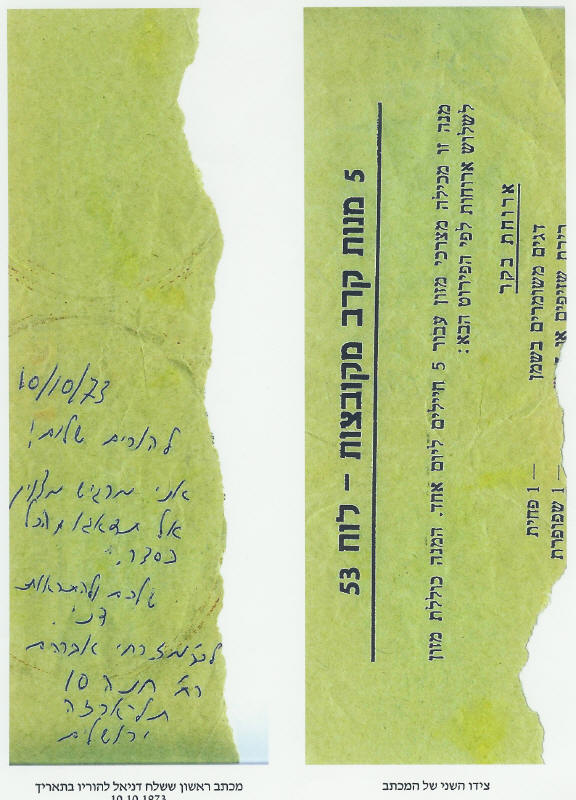 10/10/73
להורים שלום!
אני מרגיש מצוין
אל תדאגו הכל
בסדר.
שלכם ולהתראות
דני.
לכ' מזרחי אברהם
רח' חנה 10
תל-ארזה
ירושלים
מכתב ראשון ששלח דניאל להוריו בתאריך
10.10.1973
5 מנות קרב מקובצות – לוח 53
מנה זו מכילה מצרכי מזון עבור 5 חיילים ליום אחד. המנה כוללת מזון
לשלוש ארוחות לפי הפירוט הבא:
ארוחת בקר
דגים משומרים בשמן – 1 פחית
ריבת שזיפים או – 1 שפופרת
צידו השני של המכתב